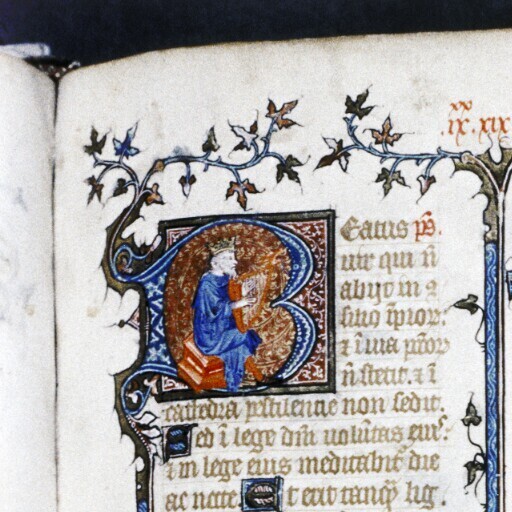 xx
.ix. xix
Beatus ps̄.
uir qui n̄
abijt in 9
silio īpior:
⁊ ī uia pctōr
n̄ stetit. ⁊ ī
cathedra pestilencie non sedit.
Sed ī lege dn̄i uolūtas eius:
⁊ in lege eius meditabit᷑ die
ac nocte. Et erit tanqͣ lig